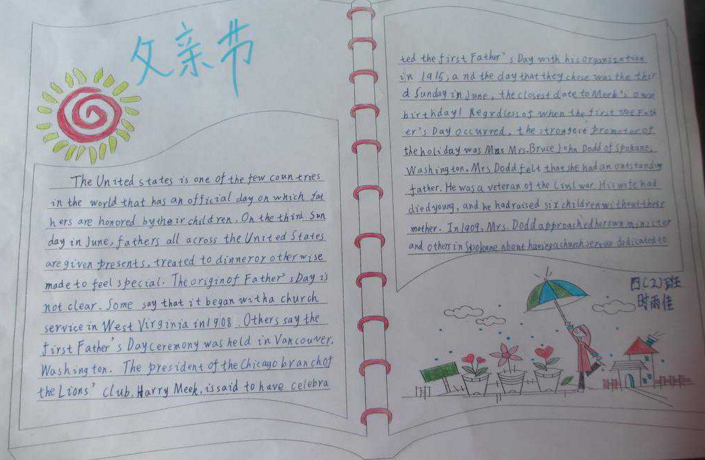 父亲节
The United states is one of the few countries
in the world that has an official day on which fat
hers are honored by their children. On the third Sun
day in June, fathers all across the United States
are given presents, treated to dinner or other wise
made to feel special. The origin of Father's Day is
not clear. Some say that it began with a church
service in West Virginia in 1908. Others say the
first Father's Day ceremony was held in Vancouver,
Washington. The president of the Chicago branch of
the Lions' club, Harry Meek, is said to have celebra
ted the first Father's Day with his organization
in 1915, and the day that they chose was the thir
d Sunday in June, the closest date to Meek's own
birthday! Regrdless of when the first
er's Day occurred, the strongest promoter of
the holiday was Mrs. Bruce John Dodd of Spokane,
Washington. Mrs Dodd felt that she had an outstanding
father. He was a veteran of the His wife had
died young, and he had raised six children without their
mother. In 1909, Mrs. Dodd approached her own minister
and others in Spokane about having a church service dedicated to
四(2)班
时雨佳